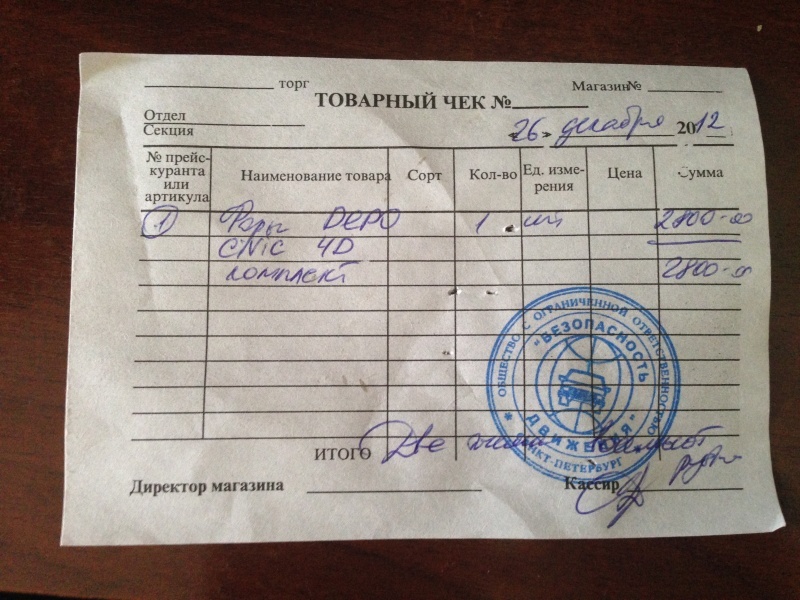 торг Магазин№
ТОВАРНЫЙ ЧЕК №
Отдел
Секция
«26» декабря 2012
№ прейс-
куранта
или
артикула
Наименование товара
Сорт
Кол-во
Ед. изме-
рения
Цена
Сумма
1 Фары DEPO 1 шт 2800-00
Civic 4D
комплект 2800-00
ОБЩЕСТВО С ОГРАНИЧЕННОЙ ОТВЕТСТВЕННОСТЬЮ
"БЕЗОПАСНОСТЬ
ДВИЖЕНИЯ"
САНКТ-ПЕТЕРБУРГ
ИТОГО Две тысячи восемьсот
рублей
Директор магазина Кассир